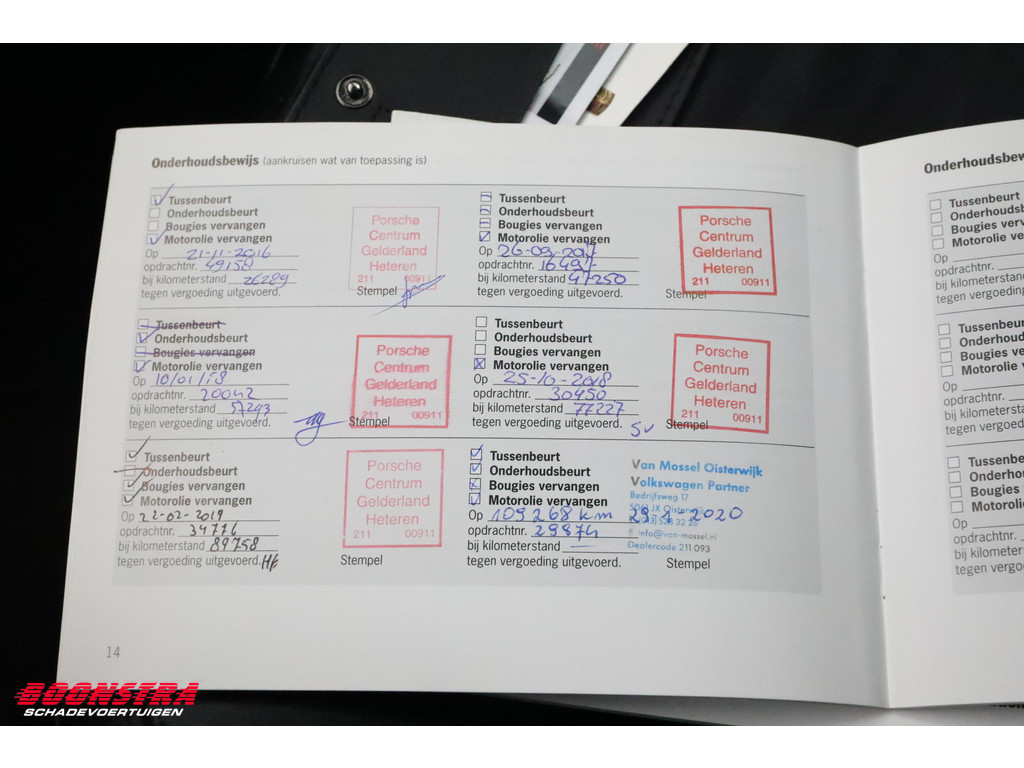 Onderhoudsbewijs (aankruisen wat van toepassing is)
Tussenbeurt
Onderhoudsbeurt
Bougies vervangen
Motorolie vervangen
Op 21-11-2016
opdrachtnr. 49158
bij kilometerstand 26289
tegen vergoeding uitgevoerd.
Porsche
Centrum
Gelderland
Heteren
211 00911
Stempel
Tussenbeurt
Onderhoudsbeurt
Bougies vervangen
Motorolie vervangen
Op 26-09-2017
opdrachtnr.
bij kilometerstand 47250
tegen vergoeding uitgevoerd.
Porsche
Centrum
Gelderland
Heteren
211 00911
Stempel
Tussenbeurt
Onderhoudsbeurt
Bougies vervangen
Motorolie vervangen
Op 10/01/18
opdrachtnr. 20042
bij kilometerstand 57243
tegen vergoeding uitgevoerd.
Porsche
Centrum
Gelderland
Heteren
211 00911
Stempel
Tussenbeurt
Onderhoudsbeurt
Bougies vervangen
Motorolie vervangen
Op 25-10-2018
opdrachtnr. 30450
bij kilometerstand 77227
tegen vergoeding uitgevoerd.
Porsche
Centrum
Gelderland
Heteren
211 00911
Stempel
Tussenbeurt
Onderhoudsbeurt
Bougies vervangen
Motorolie vervangen
Op 22-02-2019
opdrachtnr. 34776
bij kilometerstand 89758
tegen vergoeding uitgevoerd.
Porsche
Centrum
Gelderland
Heteren
211 00911
Stempel
Tussenbeurt
Onderhoudsbeurt
Bougies vervangen
Motorolie vervangen
Op 109268 km 29-1-2020
opdrachtnr. 29874
bij kilometerstand
tegen vergoeding uitgevoerd.
Van Mossel Oisterwijk
Volkswagen Partner
Bedrijfsweg 17
5061 JX Oisterwijk
info@van-mossel.nl
Dealercode 211 093
Stempel
14
Onderhoudsbew
Tussenbeurt
Onderhoudsbe
Bougies verva
Motorolie verv
Op
opdrachtnr.
bij kilometersta
tegen vergoedin
Tussenbeurt
Onderhoudsb
Bougies verva
Motorolie ver
Op
opdrachtnr.
bij kilometersta
tegen vergoedin
Tussenbeu
Onderhouds
Bougies ver
Motorolie v
Op
opdrachtnr.
bij kilometers
tegen vergoed
BOONSTRA
SCHADEVOERTUIGEN